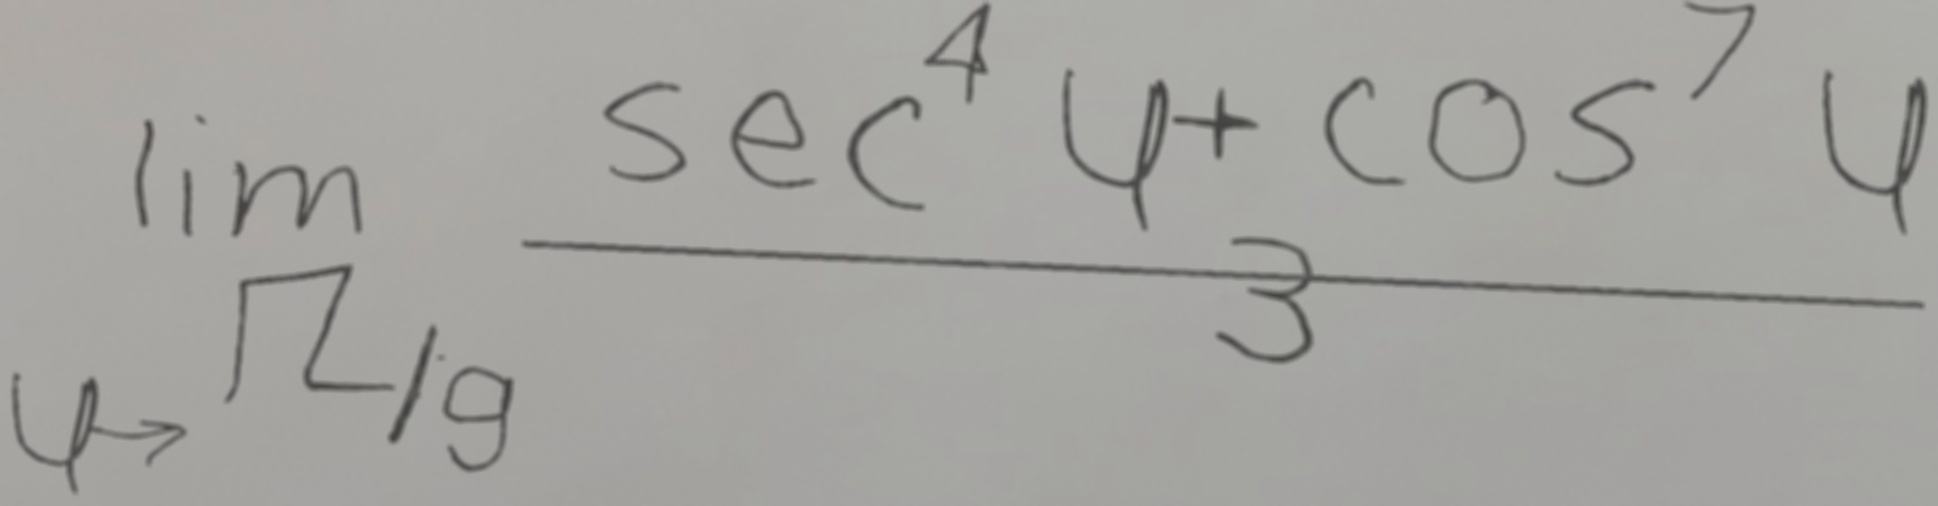 lim_{y→π/9} \frac{sec^4 y + cos^7 y}{3}